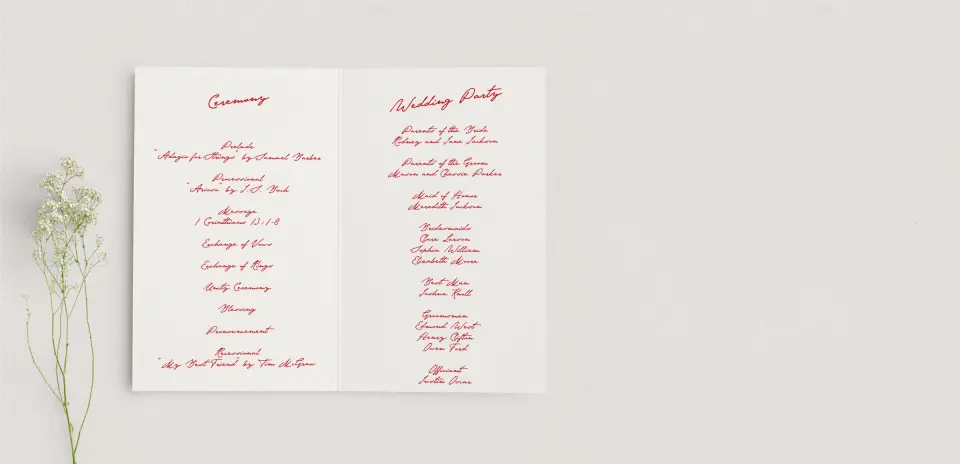 Ceremony
Prelude
"Adagio for Strings" by Samuel Barber
Processional
"Arioso" by J.S. Bach
Message
1 Corinthians 13:1-8
Exchange of Vows
Exchange of Rings
Unity Ceremony
Blessing
Pronouncement
Recessional
"My Best Friend" by Tim McGraw
Wedding Party
Parents of the Bride
Rodney and Jane Jackson
Parents of the Groom
Mason and Carrie Parker
Maid of Honor
Meredith Jackson
Bridesmaids
Larson
Sophia William
Elizabeth Moore
Best Man
Joshua Knoll
Groomsmen
Edmond West
Henry Clifton
Owen Ford
Officiant
Justin